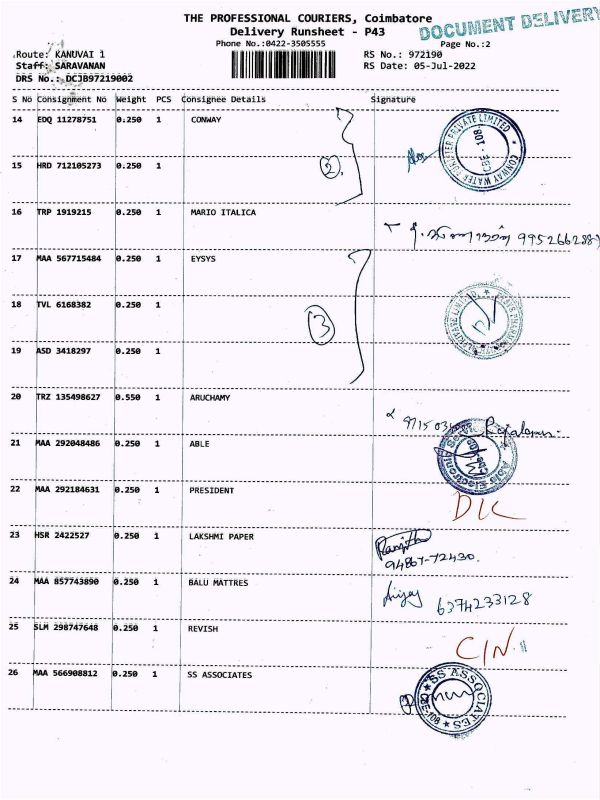 THE PROFESSIONAL COURIERS, Coimbatore
DOCUMENT DELIVERY
Delivery Runsheet - P43
Phone No.:0422-3505555
Page No.:2
Route: KANUVAI 1
RS No.: 972190
Staff: SARAVANAN
RS Date: 05-Jul-2022
DRS No.: DCJB97219002
S No Consignment No Weight PCS Consignee Details Signature
14 EDQ 11278751 0.250 1 CONWAY
CONWAY WATER PRIVATE LIMITED CBE - 108
15 HRD 712105273 0.250 1
2.
16 TRP 1919215 0.250 1 MARIO ITALICA
17 MAA 567715484 0.250 1 EYSYS
18 TVL 6168382 0.250 1
3
19 ASD 3418297 0.250 1
20 TRZ 135498627 0.550 1 ARUCHAMY
21 MAA 292048486 0.250 1 ABLE
22 MAA 292184631 0.250 1 PRESIDENT
DIL
23 HSR 2422527 0.250 1 LAKSHMI PAPER
Ranjith
94867-72430.
24 MAA 857743890 0.250 1 BALU MATTRES
6374233128
25 SLM 298747648 0.250 1 REVISH
C/N.
26 MAA 566908812 0.250 1 SS ASSOCIATES
SS ASSOCIATES CBE-108